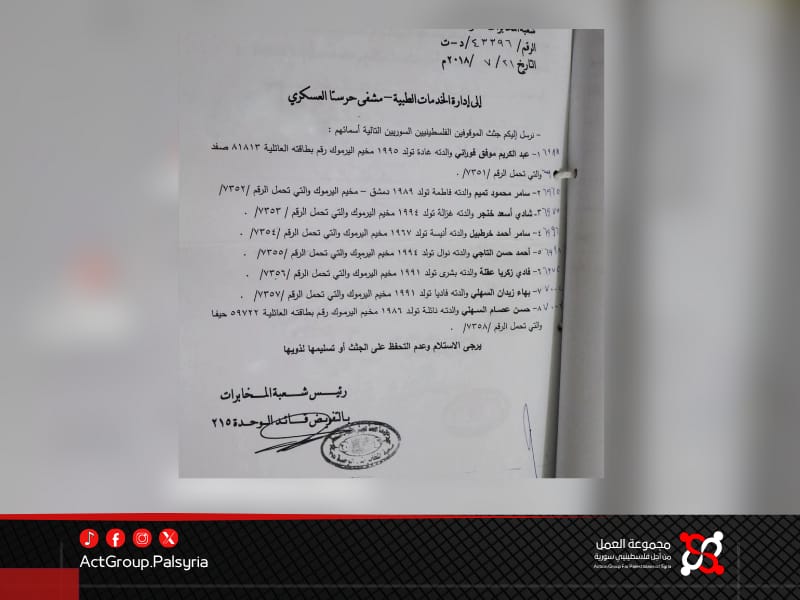 شعبة المخابرات
الرقم/ ٤٣٣٩٦/د-ت
التاريخ ٢١/ ٧ /٢٠١٨م
إلى إدارة الخدمات الطبية – مشفى حرستا العسكري
- نرسل إليكم جثث الموقوفين الفلسطينيين السوريين التالية أسمائهم :
١- عبد الكريم موفق فوراني والدته غادة تولد ١٩٩٥ مخيم اليرموك رقم بطاقته العائلية ٨١٨١٣ صفد
والتي تحمل الرقم /٧٣٥١/ .
٢- سامر محمود تميم والدته فاطمة تولد ١٩٨٩ دمشق – مخيم اليرموك والتي تحمل الرقم /٧٣٥٢/
٣- شادي أسعد خنجر والدته غزالة تولد ١٩٩٤ مخيم اليرموك والتي تحمل الرقم / ٧٣٥٣/ .
٤- سامر أحمد خرطبيل والدته أنيسة تولد ١٩٦٧ مخيم اليرموك والتي تحمل الرقم /٧٣٥٤/ .
٥- أحمد حسن التاجي والدته نوال تولد ١٩٩٤ مخيم اليرموك والتي تحمل الرقم /٧٣٥٥/ .
٦- فادي زكريا عقلة والدته بشرى تولد ١٩٩١ مخيم اليرموك والتي تحمل الرقم /٧٣٥٦/ .
٧- بهاء زيدان السهلي والدته فاديا تولد ١٩٩١ مخيم اليرموك والتي تحمل الرقم /٧٣٥٧/ .
٨- حسن عصام السهلي والدته نائلة تولد ١٩٨٦ مخيم اليرموك رقم بطاقته العائلية ٥٩٧٢٢ حيفا
والتي تحمل الرقم /٧٣٥٨/ .
يرجى الاستلام وعدم التحفظ على الجثث أو تسليمها لذويها
رئيس شعبة المخابرات
بالتفويض قائد الوحدة ٢١٥
ActGroup.Palsyria
مجموعة العمل
من أجل فلسطينيي سورية
Action Group For Palestinians of Syria